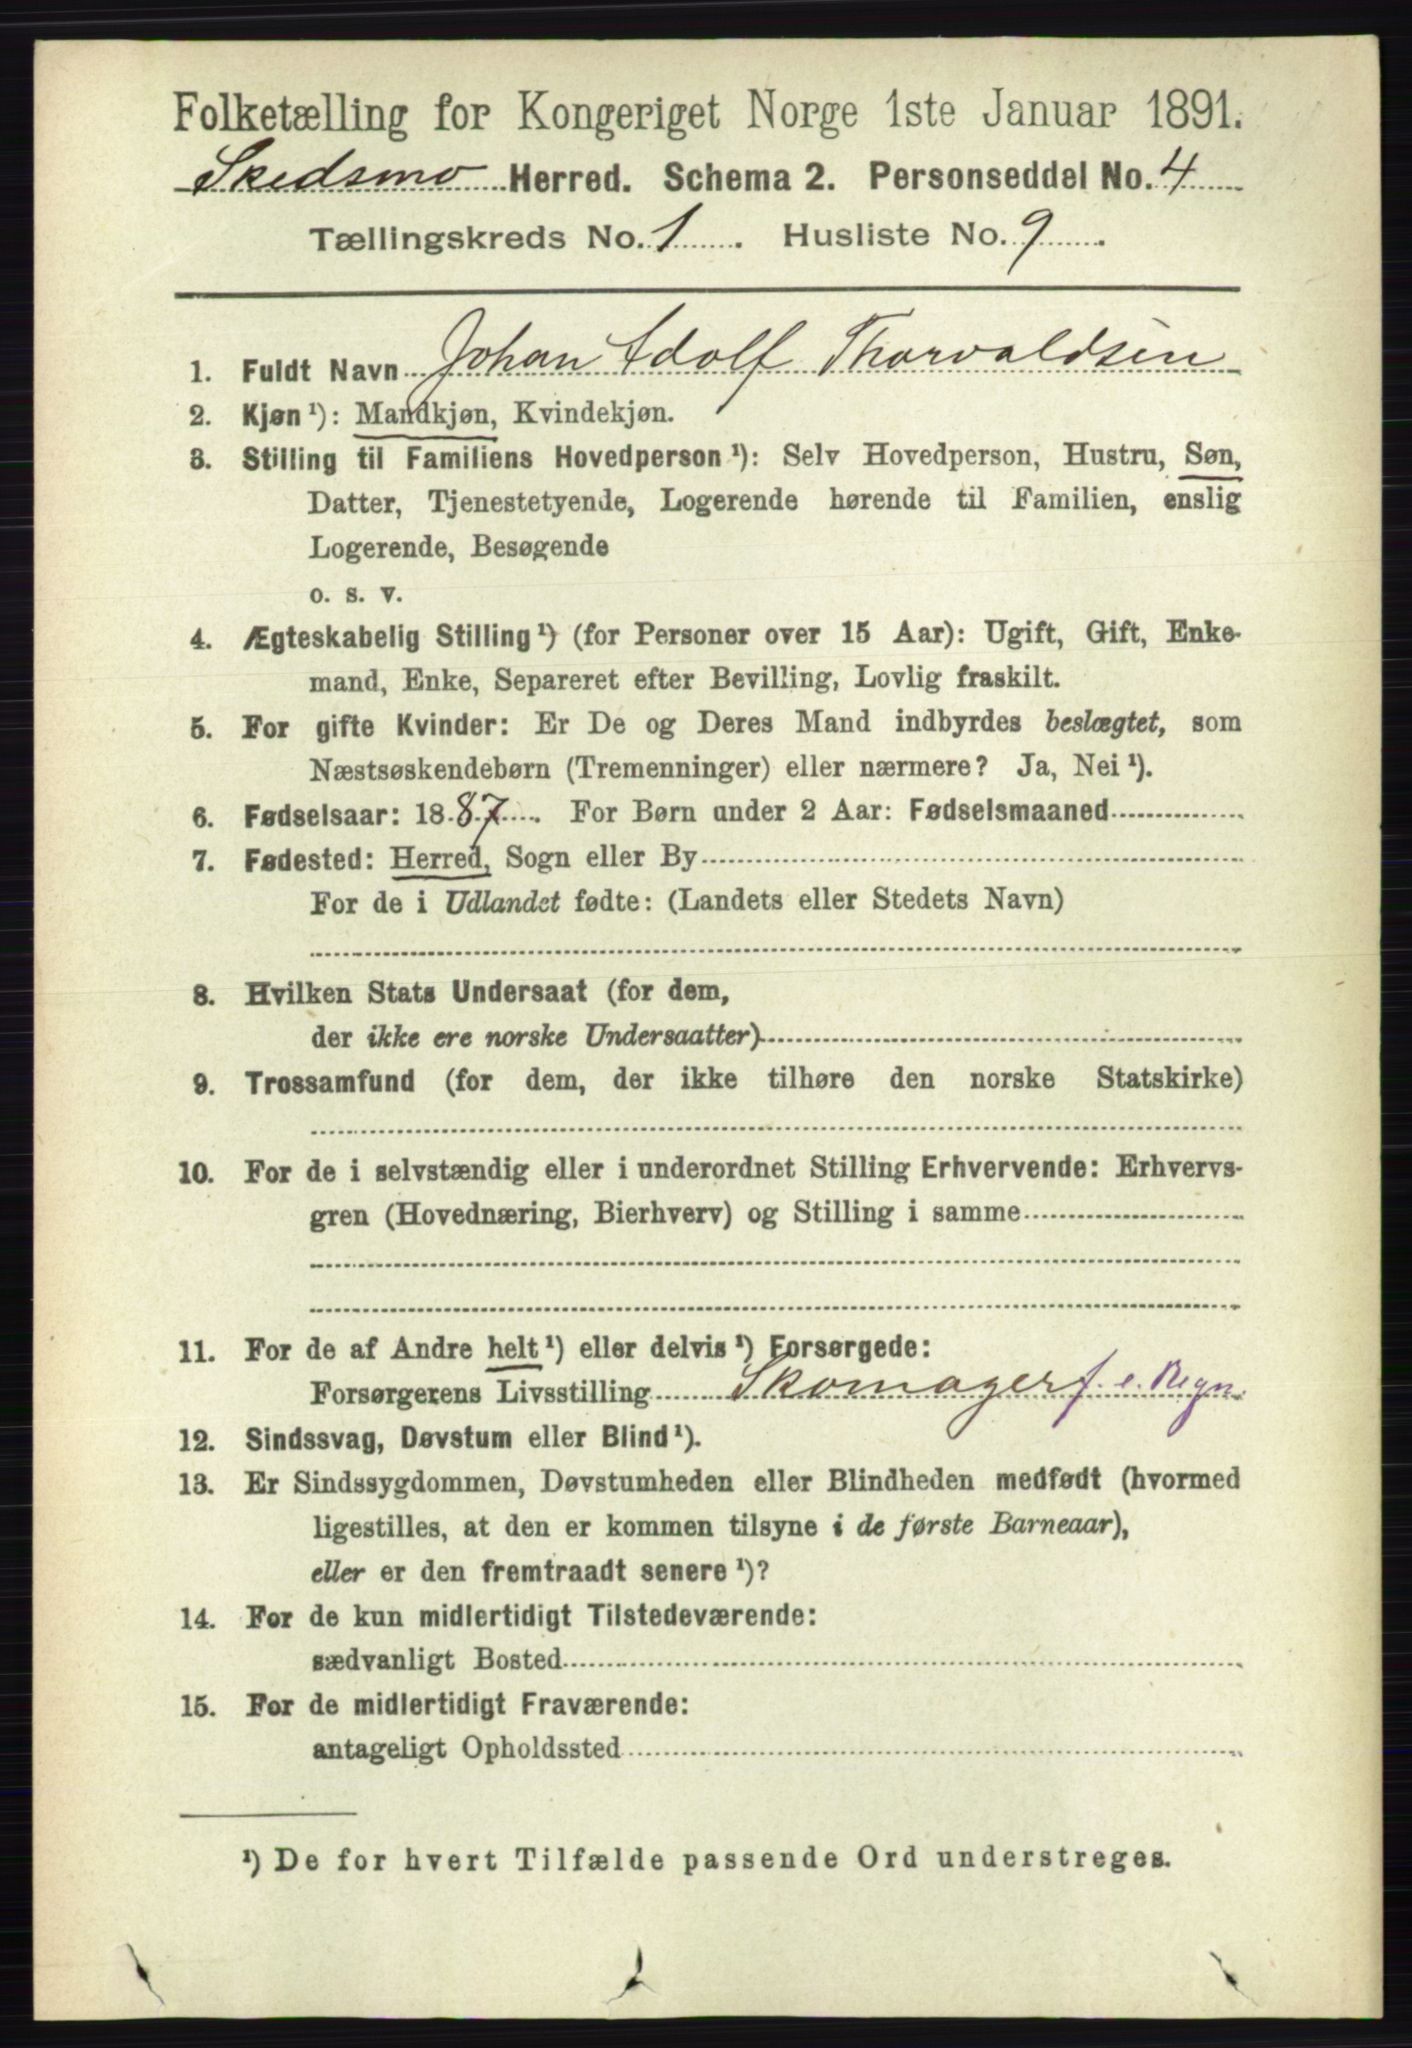 Folketælling for Kongeriget Norge 1ste Januar 1891.
Skedsmo Herred. Schema 2. Personseddel No. 4
Tællingskreds No. 1. Husliste No. 9.
1. Fuldt Navn Johan Adolf Thorvaldsen
2. Kjøn¹): Mandkjøn, Kvindekjøn.
3. Stilling til Familiens Hovedperson¹): Selv Hovedperson, Hustru, Søn,
Datter, Tjenestetyende, Logerende hørende til Familien, enslig
Logerende, Besøgende
o. s. v.
4. Ægteskabelig Stilling¹) (for Personer over 15 Aar): Ugift, Gift, Enke-
mand, Enke, Separeret efter Bevilling, Lovlig fraskilt.
5. For gifte Kvinder: Er De og Deres Mand indbyrdes beslægtet, som
Næstsøskendebørn (Tremenninger) eller nærmere? Ja, Nei¹).
6. Fødselsaar: 1887. For Børn under 2 Aar: Fødselsmaaned
7. Fødested: Herred, Sogn eller By
For de i Udlandet fødte: (Landets eller Stedets Navn)
8. Hvilken Stats Undersaat (for dem,
der ikke ere norske Undersaatter)
9. Trossamfund (for dem, der ikke tilhøre den norske Statskirke)
10. For de i selvstændig eller i underordnet Stilling Erhvervende: Erhvervs-
gren (Hovednæring, Bierhverv) og Stilling i samme
11. For de af Andre helt¹) eller delvis¹) Forsørgede:
Forsørgerens Livsstilling Skomager f. e. Regn.
12. Sindssvag, Døvstum eller Blind¹).
13. Er Sindssygdommen, Døvstumheden eller Blindheden medfødt (hvormed
ligestilles, at den er kommen tilsyne i de første Barneaar),
eller er den fremtraadt senere¹)?
14. For de kun midlertidigt Tilstedeværende:
sædvanligt Bosted
15. For de midlertidigt Fraværende:
antageligt Opholdssted
¹) De for hvert Tilfælde passende Ord understreges.